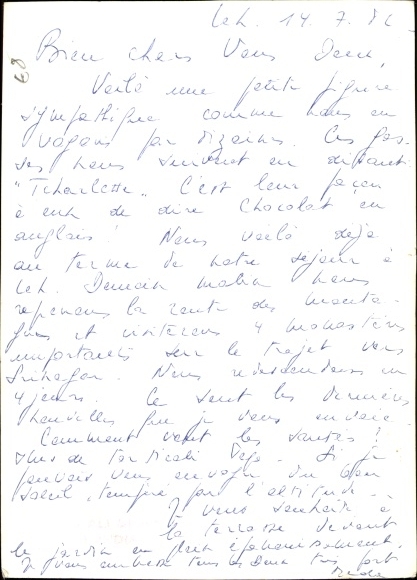 Leh. 14. 7. 86
Bien chers Vous Deux,
Voilà une petite figure
sympathique comme nous en
voyons par dizaines. Ces gos-
ses nous suivent en disant
"Tcharlette". C'est leur façon
à eux de dire Chocolat en
anglais! Nous voilà déjà
au terme de notre séjour à
Leh. Demain matin nous
reprenons la route des monta-
gnes et visiterons 4 monastères
importants sur le trajet vers
Srinagar. Nous redescendons en
4 jours. Ce sont les dernières
nouvelles que je vous envoie.
Comment vont les santés?
Plus de Si je
pouvais vous envoyer du bon
soleil, tempéré par l'altitude...
Je vous souhaite à
la terrasse devant
le jardin en plein épanouissement.
Je vous embrasse tous les Deux très fort